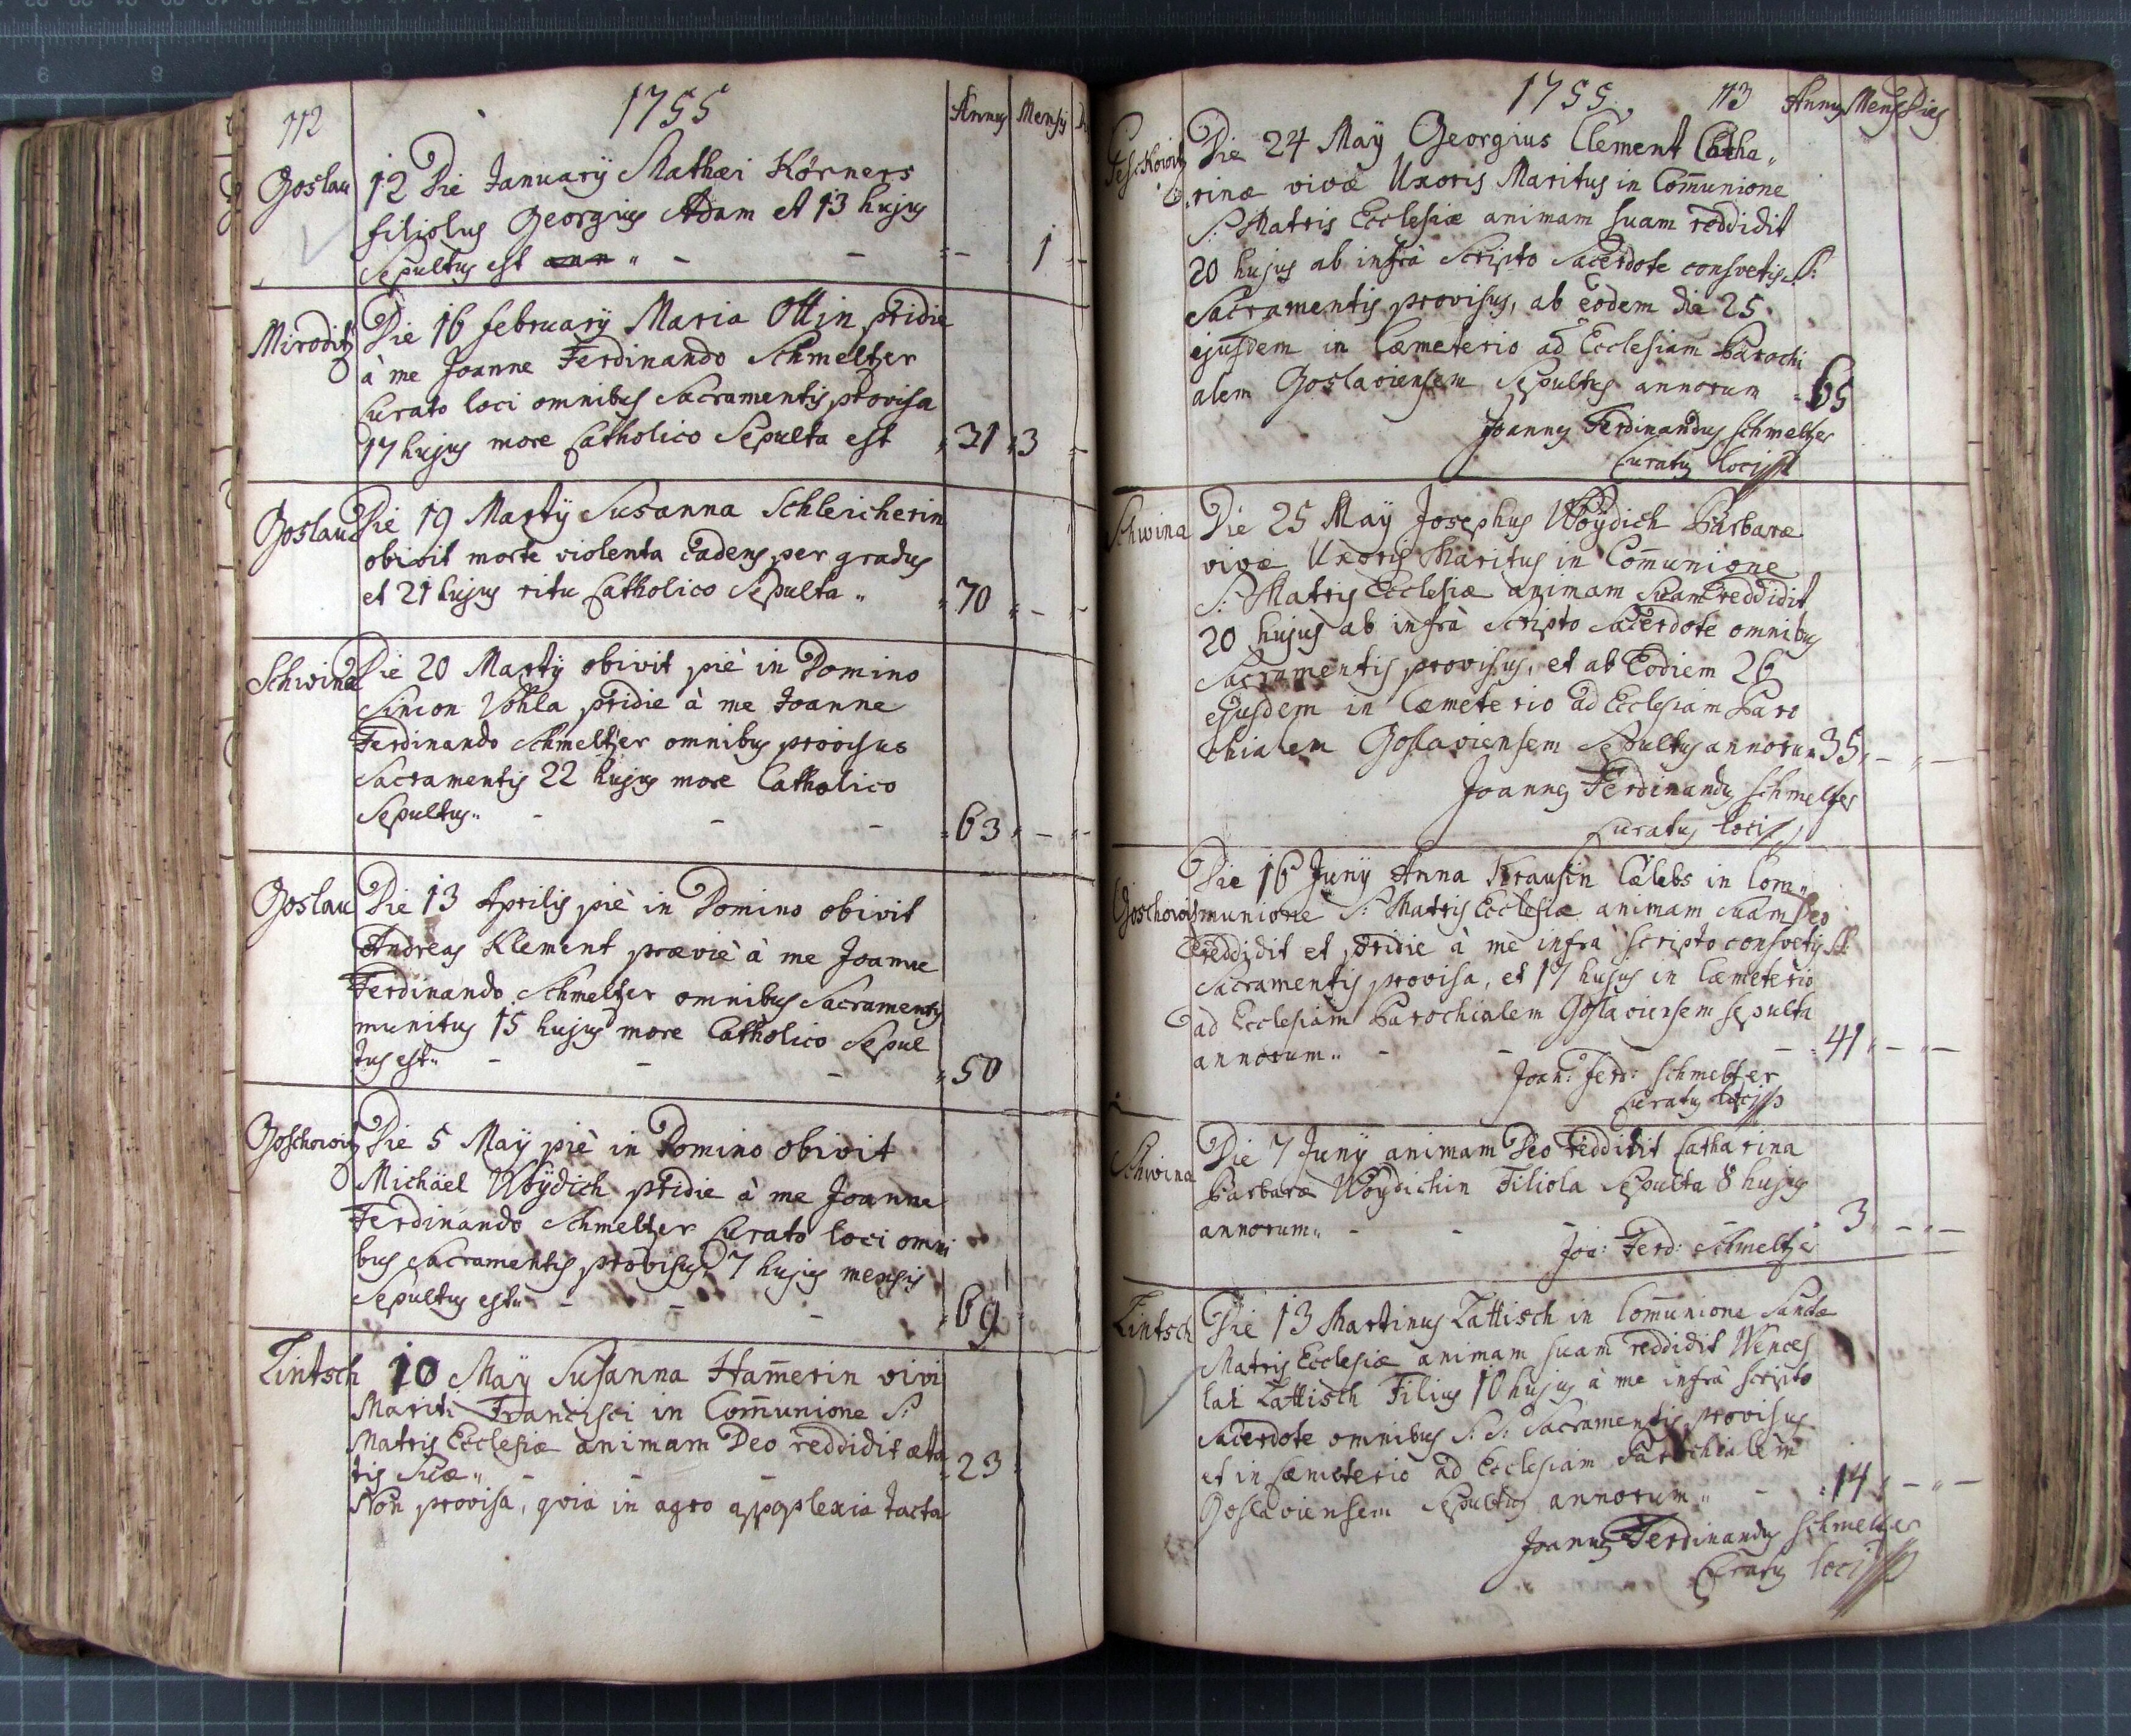 112
1755
Annus Mensis
Goslau
12 Die January Mathæi Körners
filiolus Georgius Adam et 13 hujus
Sepultus est ann „ - - „ - 1 „ -
Miroditz
Die 16 february Maria Ottin pridie
à me Joanne Ferdinando Schmeltzer
Curato loci omnibus Sacramentis provisa
17 hujus more Catholico Sepulta est „ 31 „ 3 „ -
Goslau
Die 19 Marty Susanna Schleicherin
obivit morte violenta cadens per gradus
et 21 hujus ritu Catholico Sepulta „ „ 70 „ - „ -
Schwina
Die 20 Martÿ obivit piè in Domino
Simon Vohla pridie à me Joanne
Ferdinando Schmeltzer omnibus provisus
Sacramentis 22 hujus more Catholico
Sepultus „ - - - „ 63 „ - „ -
Goslau
Die 13 Aprilis piè in Domino obivit
Andreas Klement præviè à me Joanne
Ferdinando Schmeltzer omnibus Sacramentis
munitus 15 hujus more Catholico Sepul
tus est „ - - - „ 50
Goschowitz
Die 5 Maÿ piè in Domino obivit
Michäel Woÿdich pridie à me Joanne
Ferdinando Schmeltzer Curato loci omni
bus Sacramentis provisus, 7 hujus mensis
Sepultus est „ - - - „ 69
Zintsch
10 Maÿ Susanna Ham̄erin vivi
Mariti Francisci in Com̄unione S:
Matris Ecclesiæ animam Deo reddidit æta
tis Suæ „ - - - „ 23
Non provisa, qvia in agro appoplexia tacta
1755
113
Annus Mens Dies
Die 24 Maÿ Georgius Clement Catha„
rinæ vivæ Uxoris Maritus in Com̄unione
S: Matris Ecclesiæ animam suam reddidit
20 hujus ab infrà Scripto Sacerdote consvetis S:
Sacramentis provisus, ab eodem die 25
ejusdem in Cæmeterio ad Ecclesiam Parochi
alem Goslaviensem Sepultus annorum „ 65
Joannes Ferdinandus Schmeltzer
Curatus loci
Schwina
Die 25 Maÿ Josephus Woÿdich Barbaræ
vivæ Uxoris Maritus in Com̄unione
S: Matris Ecclesiæ animam suam reddidit
20 hujus ab infrà Scripto Sacerdote omnibus
Sacramentis provisus, et ab Eodiem 26
ejusdem in Cæmeterio ad Ecclesiam Paro
chialem Goslaviensem Sepultus annorum 35 „ - „ -
Joannes Ferdinandus Schmeltzer
Curatus loci
Goschowitz
Die 16 Juny Anna Krausin Cælebs in Com„
munione S: Matris Ecclesiæ animam suam Deo
reddidit et pridie à me infra scripto consvetis SS:
Sacramentis provisa, et 17 hujus in Cæmeterio
ad Ecclesiam Parochialem Goslaviensem sepulta
annorum „ - - - - „ 41 „ - „ -
Joan: Ferd: Schmeltzer
Curatus loci
Schwina
Die 7 Juny animam Deo reddidit Catharina
Barbaræ Woydichin Filiola Sepulta 8 hujus
annorum „ - - - - 3 „ - „ -
Joa: Ferd: Schmeltzer
Zintsch
Die 13 Martinus Lattisch in Com̄unione Sanctæ
Matris Ecclesiæ animam suam reddidit Wences
lai Lattisch Filius 10 hujus à me infrà scripto
Sacerdote omnibus S: S: Sacramentis provisus
et in Cæmeterio ad Ecclesiam Parochialem
Goslaviensem Sepultus annorum „ - „ 14 „ - „ -
Joannes Ferdinandus Schmeltzer
Curatus loci